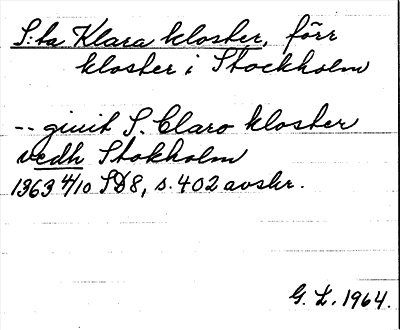 S:ta Klara kloster, förr
kloster i Stockholm
-- giuit S. Claro kloster
vedh Stokholm
1363 4/10 SD8, s. 402 avskr.
G. L. 1964.